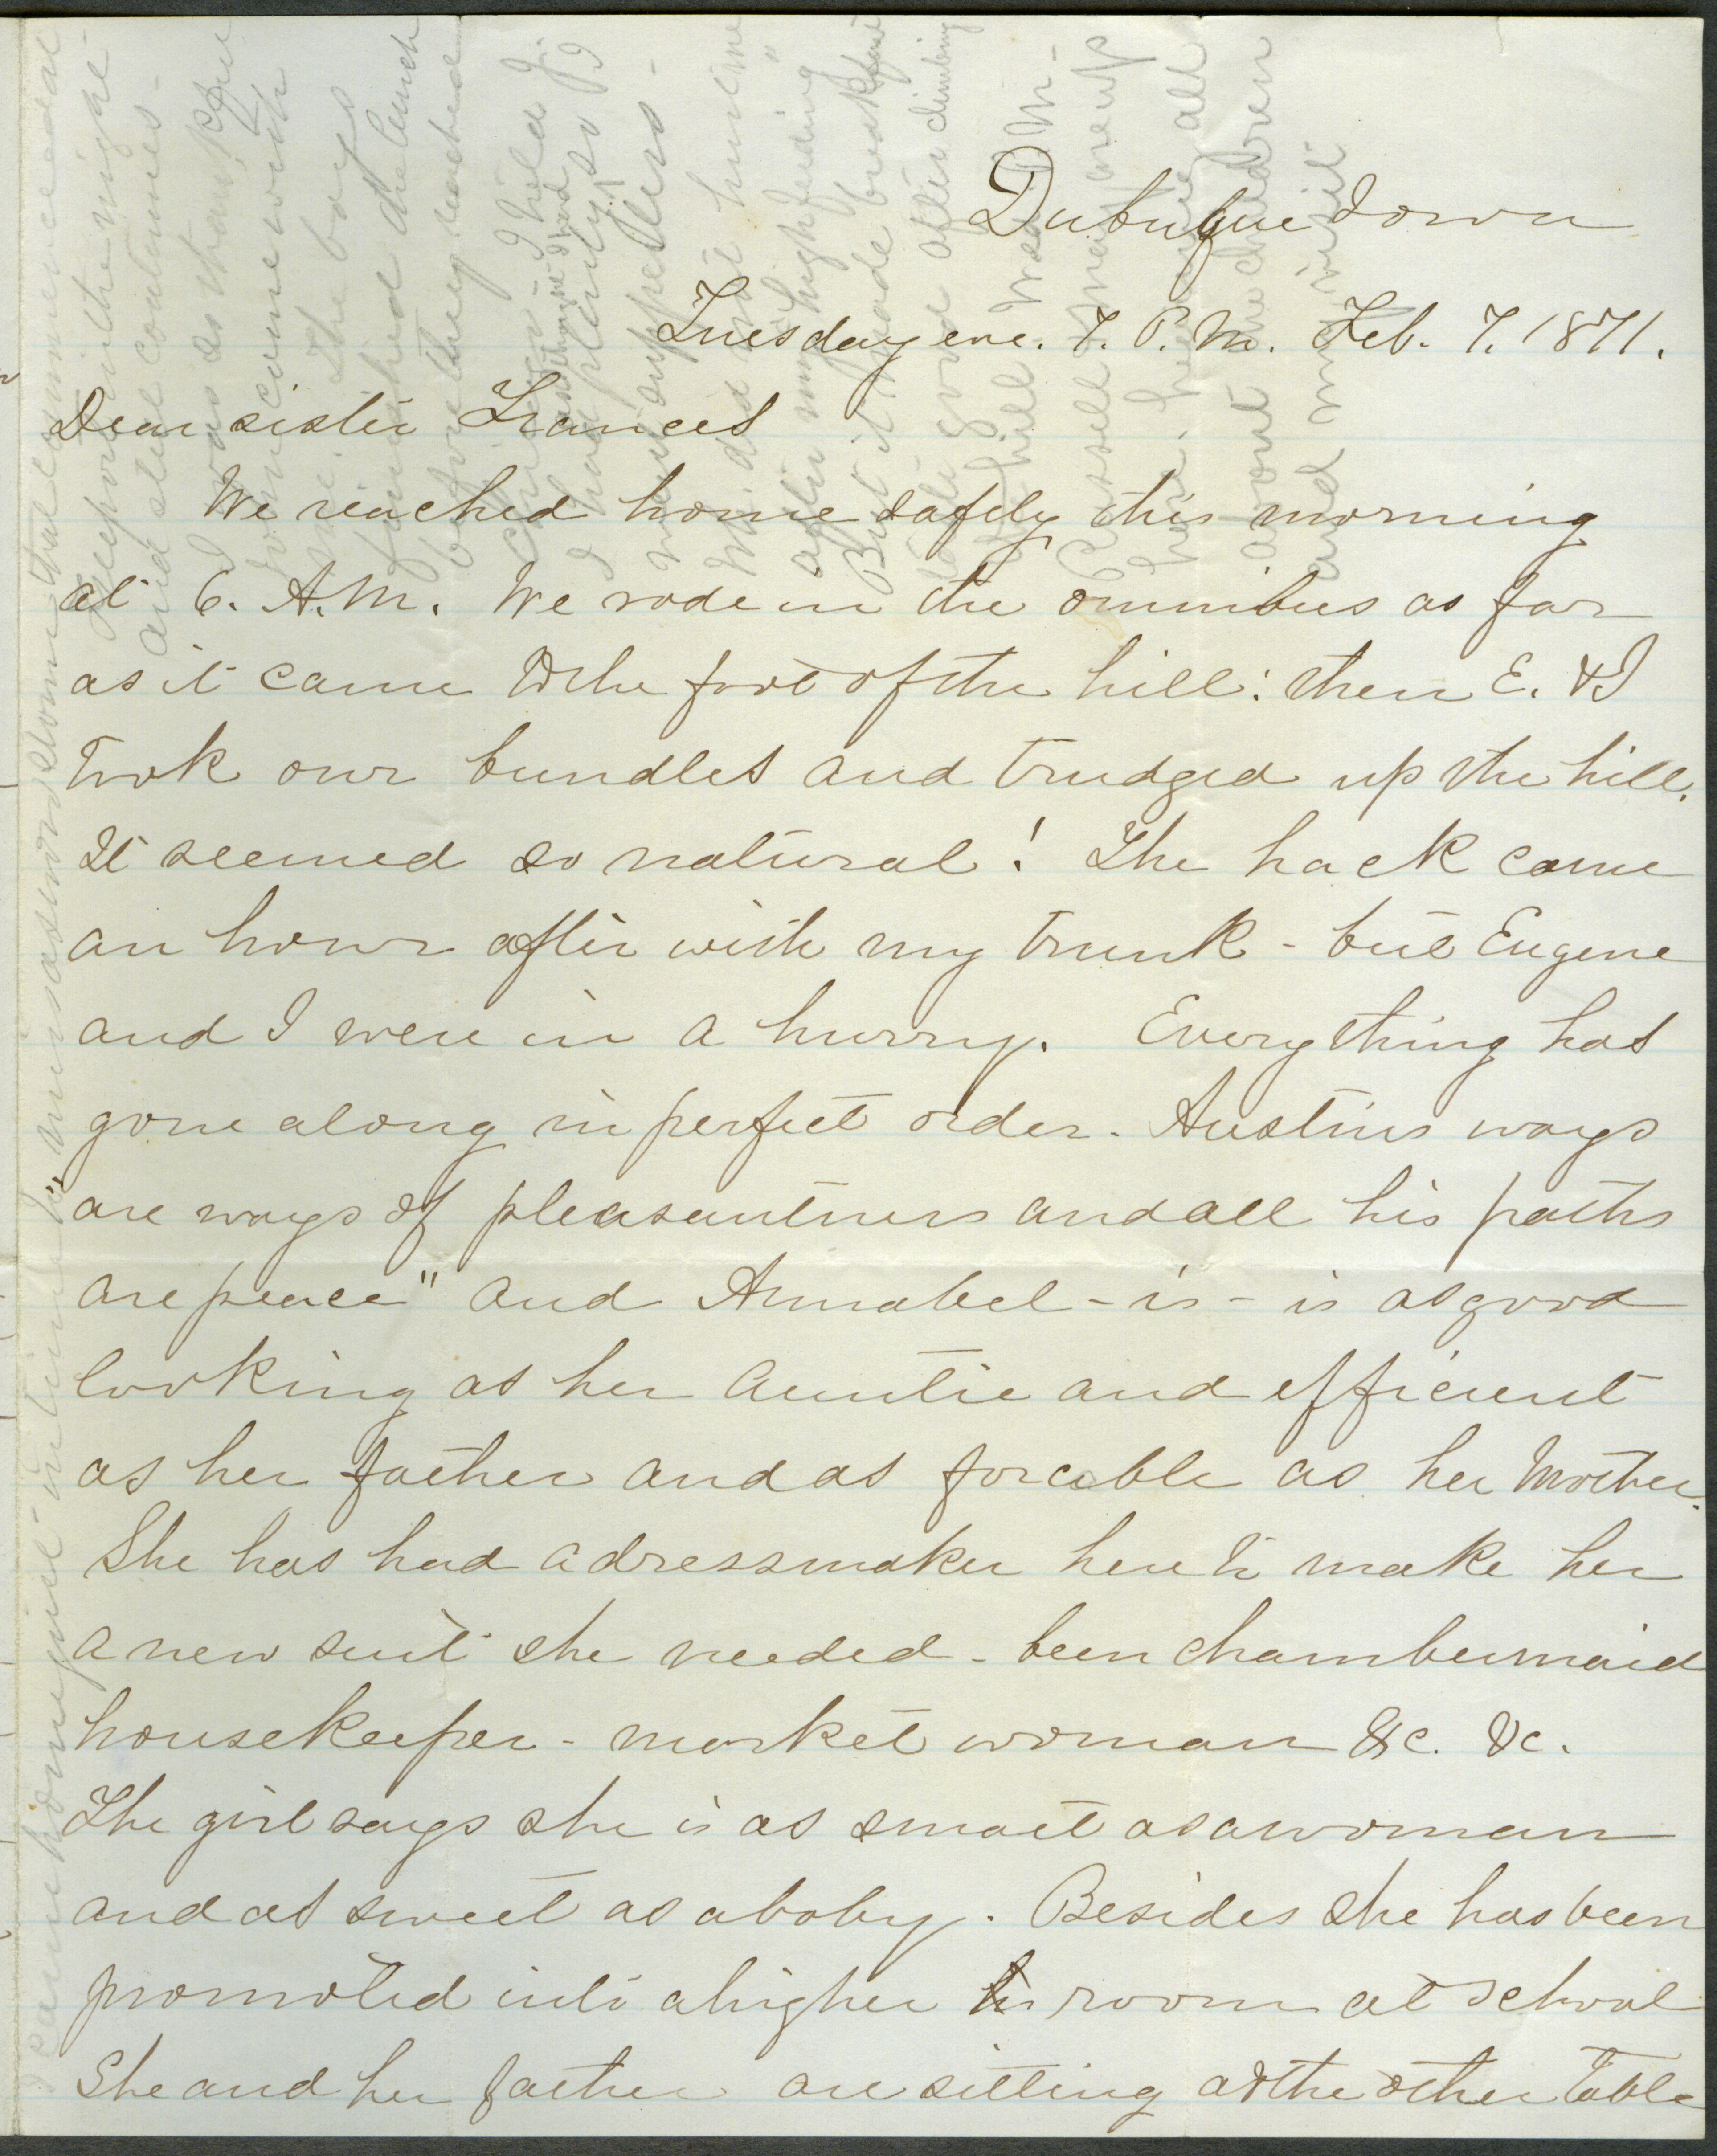 Dubuque Iowa
Tuesday eve. 7. P. M. Feb. 7. 1871.
Dear sister Frances
We reached home safely this morning
at 6. A.M. We rode in the omnibus as far
as it came to the foot of the hill: then E. & I
took our bundles and trudged up the hill.
It seemed so natural! The hack came
an hour after with my trunk - but Eugene
and I were in a hurry. Everything has
gone along in perfect order. Austins ways
are ways of pleasantness and all his paths
are peace" and Annabel - is - is as good
looking as her Auntie and efficient
as her father and as forcible as her Mother.
She has had a dressmaker here to make her
a new suit she needed - been chambermaid
housekeeper - market woman &c. &c.
The girl says she is as smart as a woman
and as sweet as a baby. Besides she has been
promoted into a higher room at school
She and her father are sitting at the other table
and still continues -
I was so thankful
came with
me. The boys
furnished the lunch
before they reached
Chicago - I held
I had plenty, so I
went supperless -
after my high feeding
But it made breakfast
taste good after climbing
the hill
Russell
here, all
about the children
and my visit